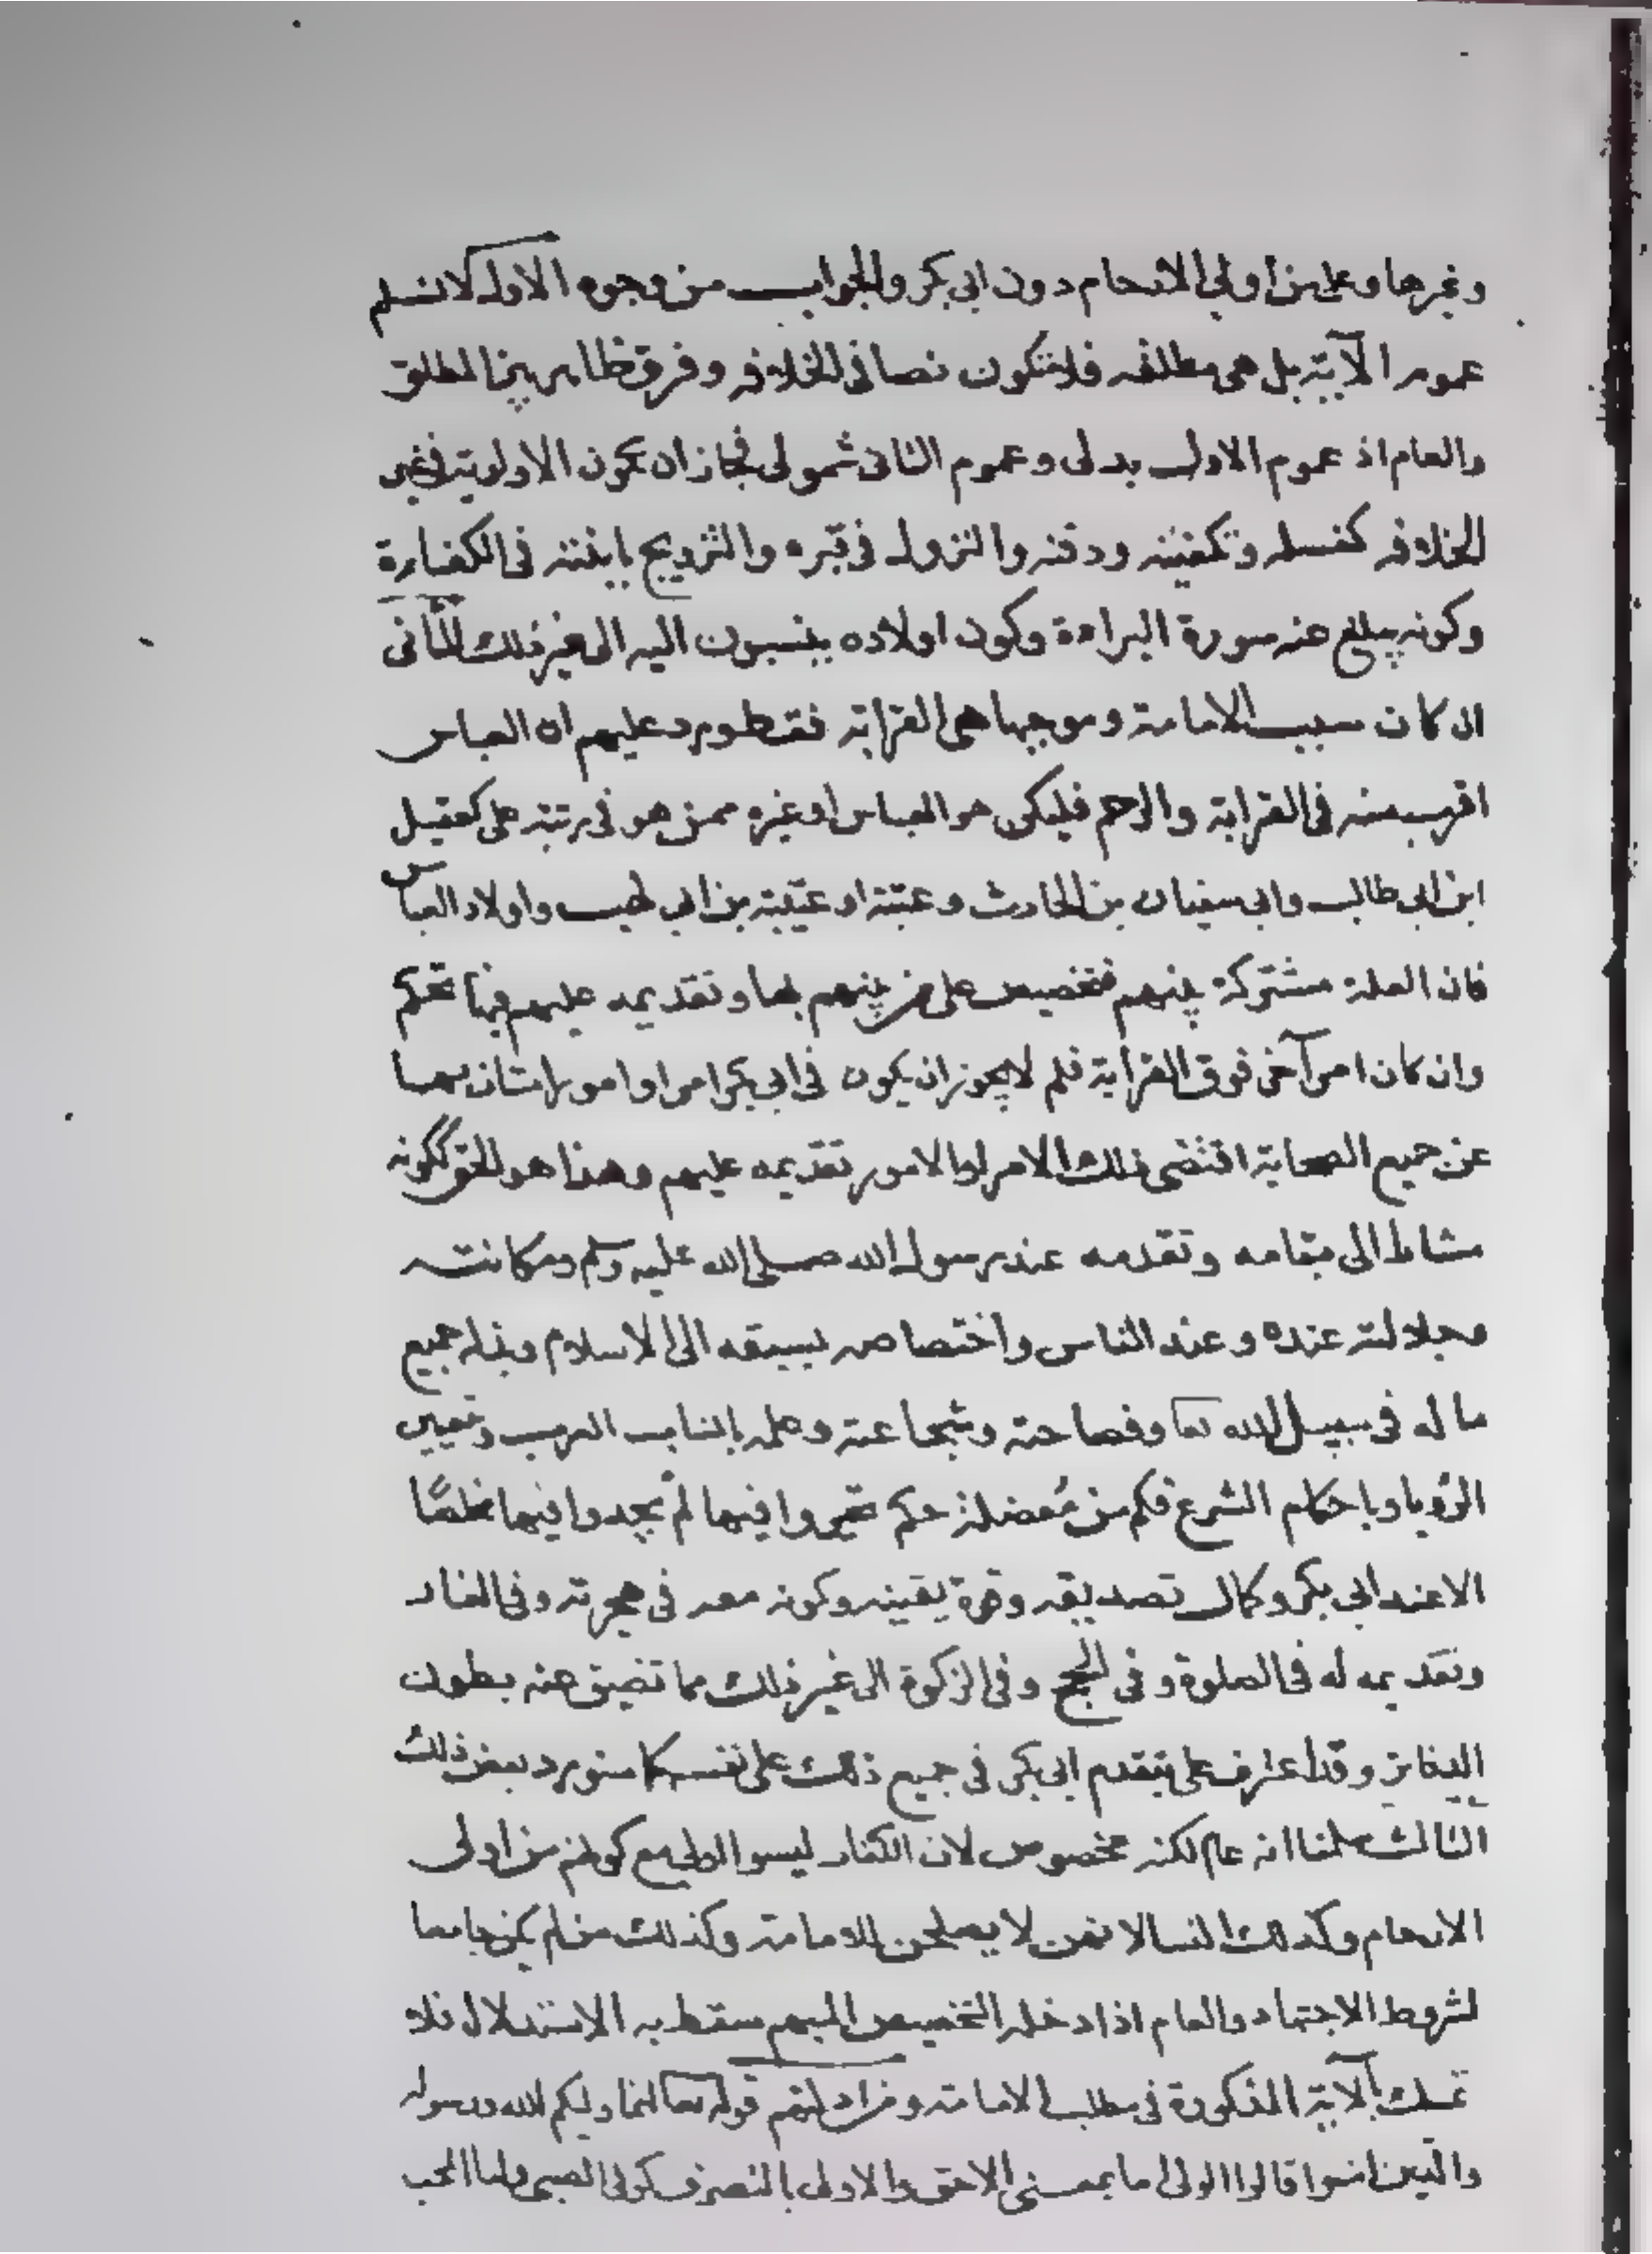 وغيرها وعلي من أولي الارحام دون ابي بكر والجواب من وجوه الاول لا نسلم
عموم الآية بل هي مطلقه فلا تكون نصا في الخلافه وفرق ظاهر بين المطلق
والعام اذ عموم الاول بدلى وعموم الثانى شمولى فجاز ان يكون الاولوية في غير
الخلافه كغسله وتكفينه ودفنه والنزول فى قبره والتزويج بابنته فى الكفارة
وكونه يبلغ عنه سورة البراءة وكون اولاده ينسبون اليه الى غير ذلك الثانى
ان كان سبب الامامة وموجبها هى القرابة فقط ورد عليهم ان العباس
اقرب منه فى القرابة والرحم فليكن هو العباس او غيره ممن هو فى رتبة على كعقيل
ابن ابى طالب وابى سفيان بن الحارث وعتبة او عتيبة بن ابى لهب واولاد العباس
فان العلة مشتركة بينهم فتخصيص على من بينهم بها وتقديمه عليهم فيها تحكم
وان كان امرآخر فوق القرابة فلم لا يجوز ان يكون فى ابى بكر امر او امور امتاز بها
عن جميع الصحابة اقتضى ذلك الامر او الامور تقديمه عليهم وهذا هو الحق ككونه
مشاط الى مقامه وتقدمه عند رسول الله صلى الله عليه وسلم ومكانته
وجلالته عنده وعند الناس واختصاصه بسبقه الى الاسلام وبذله جميع
ماله فى سبيل الله تعا وفصاحته وشجاعته وعلمه بانساب العرب وتعبير
الرؤيا وباحكام الشرع فكم من مُعضلة حكم تحيروا فيها لم يجدوا فيها مخلصًا
الا عند ابى بكر وكمال تصديقه وقوة يقينه وكونه معه فى هجرته وفى الغار
وتقديمه له فى الصلوة وفى الحج وفى الزكوة الى غير ذلك مما تضيق عنه بطون
الدفاتر وقد اعترف على بتقدم ابى بكر فى جميع ذلك على نفسه كما سنورد بعض ذلك
الثالث سلمنا انه عام لكنه مخصوص لان الكفار ليسوا اولى مع كونهم من اولى
الارحام وكذلك النسا لانهن لا يصلحن للامامة وكذلك من لم يكن جامعا
لشروط الاجتهاد والعام اذا دخله التخصيص المبهم سقط به الاستدلال فلا
تمسك بالآية المذكورة فى مطلب الامامة ومن ادلتهم قوله تعا انما وليكم الله ورسوله
والذين امنوا قالوا الولى اما بمعنى الاحق والاولى بالتصرف كولى الصبى واما المحب